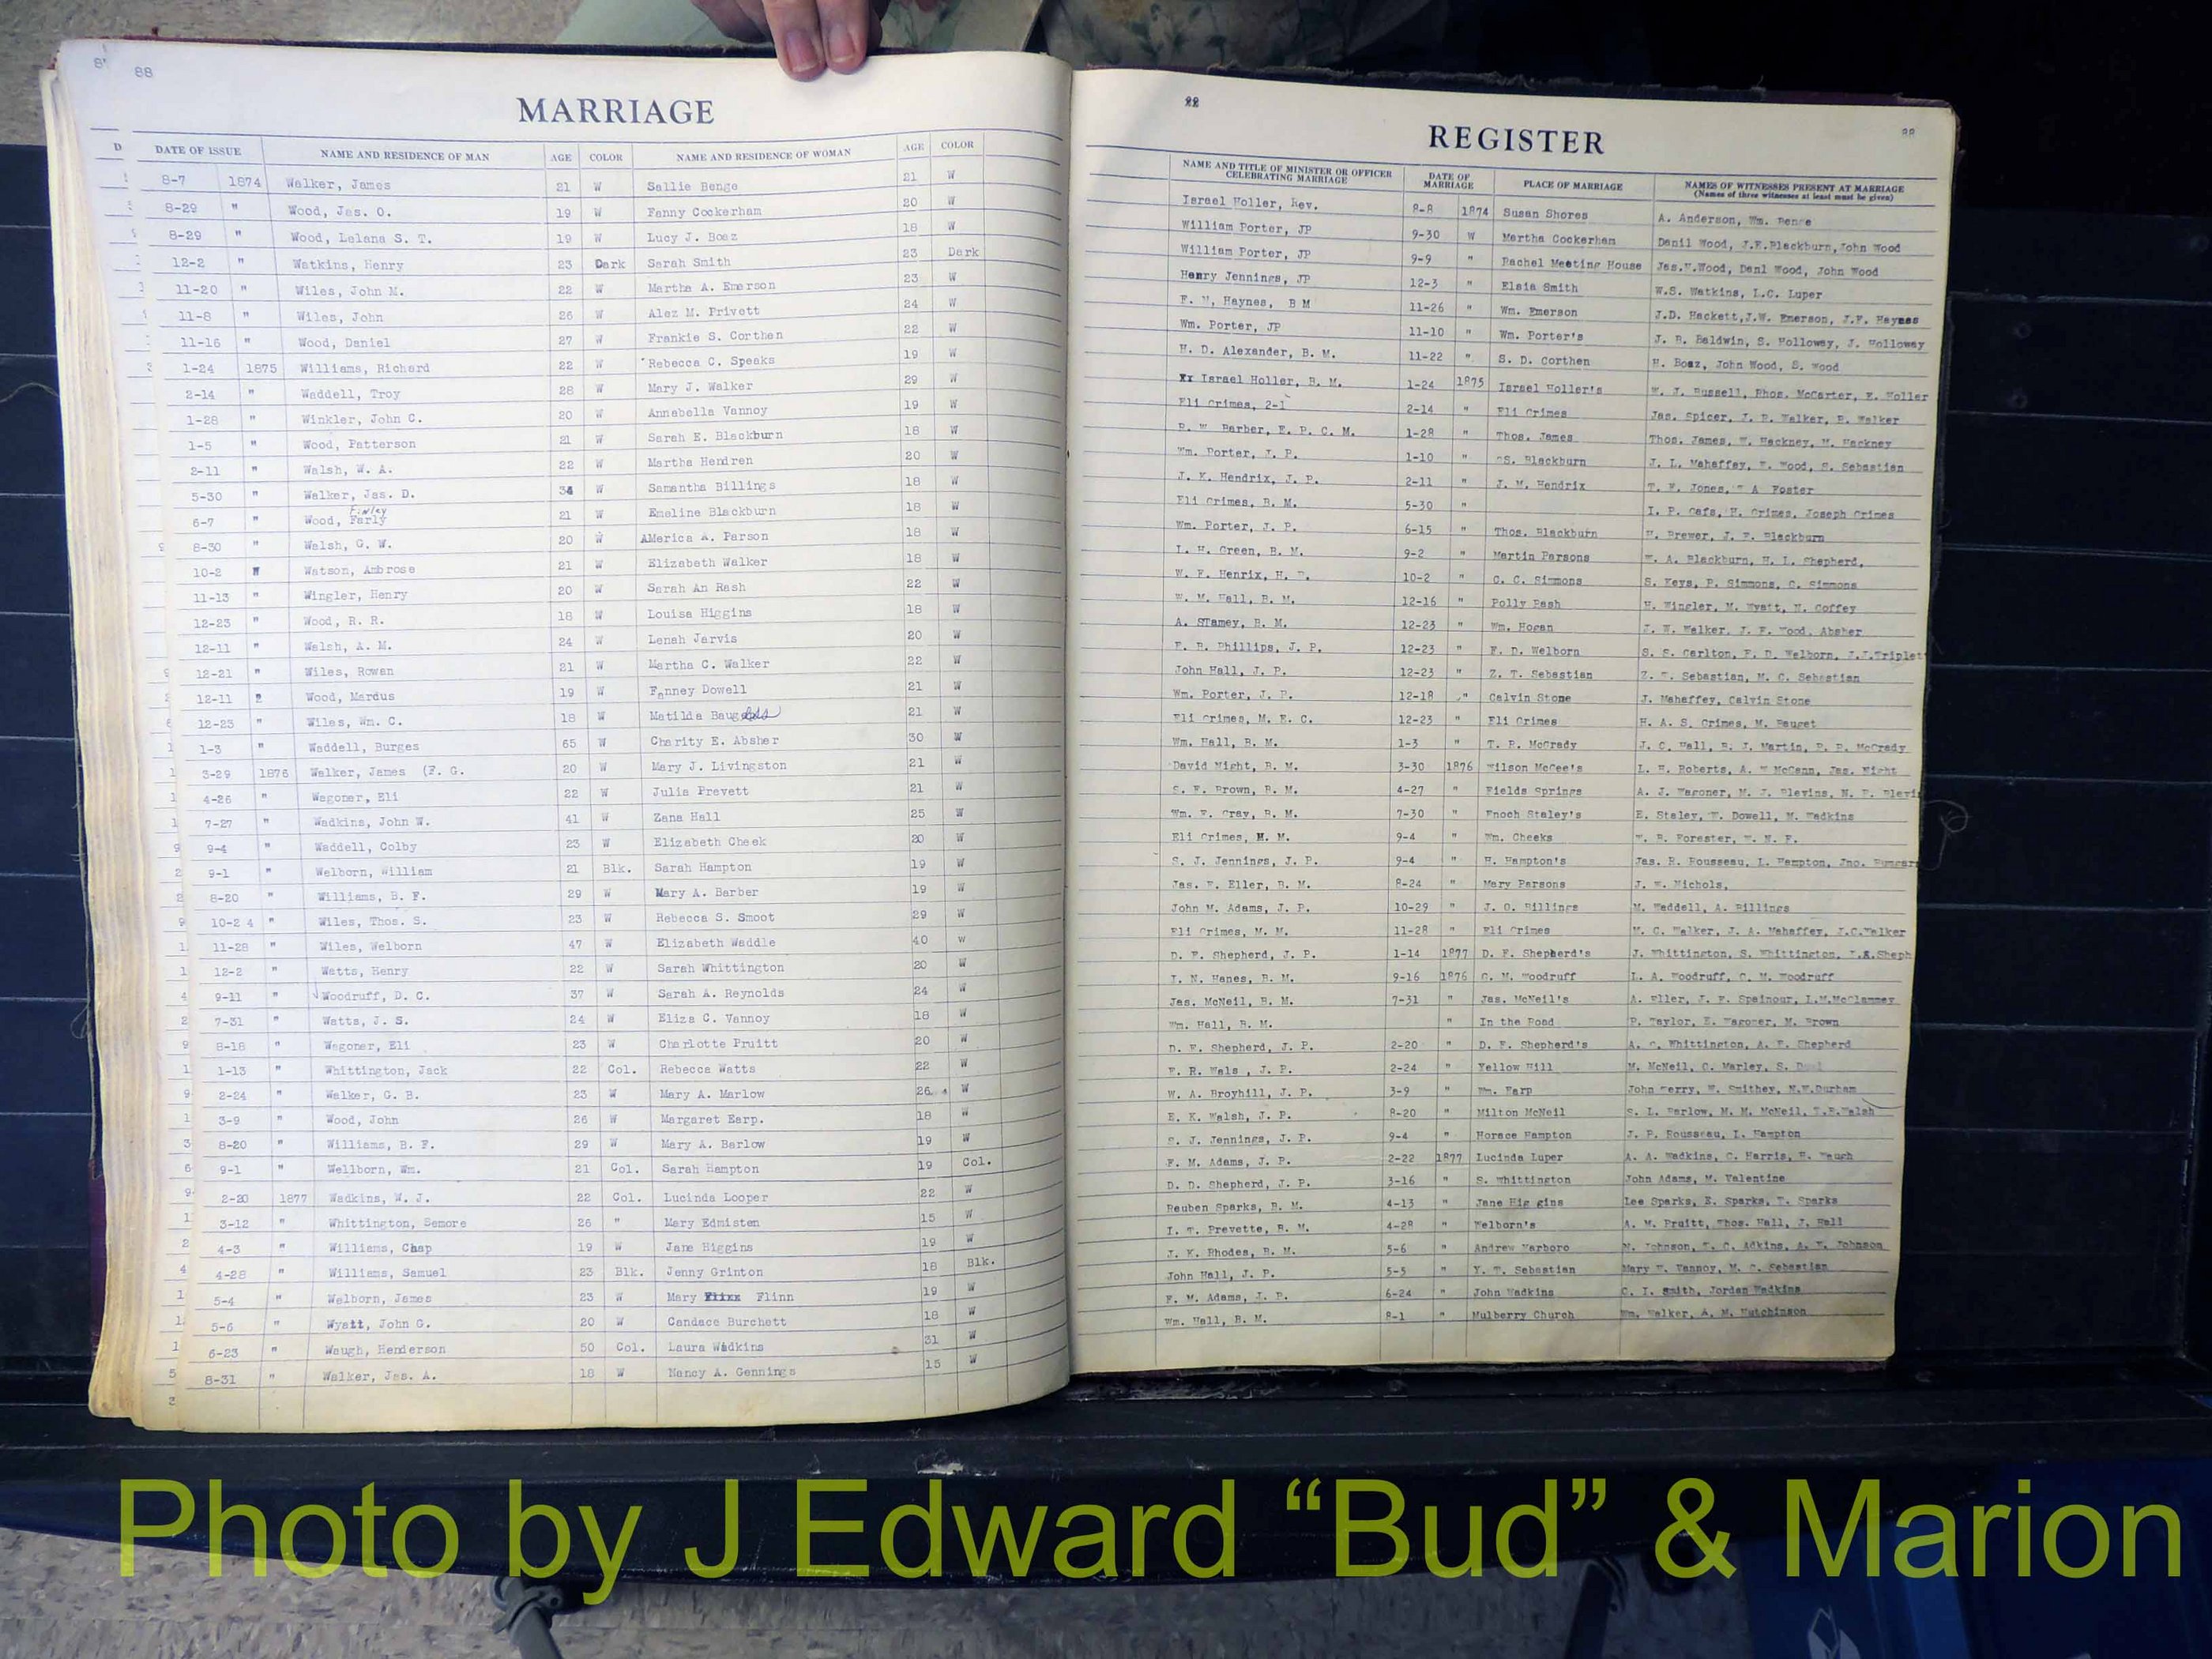 88
MARRIAGE
DATE OF ISSUE NAME AND RESIDENCE OF MAN AGE COLOR NAME AND RESIDENCE OF WOMAN AGE COLOR
8-7 1874 Walker, James 21 W Sallie Benge 21 W
8-29 " Wood, Jas. O. 19 W Fanny Cockerham 20 W
8-29 " Wood, Lelana S. T. 19 W Lucy J. Boaz 18 W
12-2 " Watkins, Henry 23 Dark Sarah Smith 23 Dark
11-20 " Wiles, John M. 22 W Martha A. Emerson 23 W
11-8 " Wiles, John 26 W Alez M. Privett 24 W
11-16 " Wood, Daniel 27 W Frankie S. Corthen 22 W
1-24 1875 Williams, Richard 22 W Rebecca C. Speaks 19 W
2-14 " Waddell, Troy 28 W Mary J. Walker 29 W
1-28 " Winkler, John C. 20 W Annabella Vannoy 19 W
1-5 " Wood, Patterson 21 W Sarah E. Blackburn 18 W
2-11 " Walsh, W. A. 22 W Martha Hendren 20 W
5-30 " Walker, Jas. D. 34 W Samantha Billings 18 W
Finley
6-7 " Wood, Farly 21 W Emeline Blackburn 18 W
8-30 " Walsh, G. W. 20 W AMerica A. Parson 18 W
10-2 " Watson, Ambrose 21 W Elizabeth Walker 18 W
11-13 " Wingler, Henry 20 W Sarah An Rash 22 W
12-23 " Wood, R. R. 18 W Louisa Higgins 18 W
12-11 " Walsh, A. M. 24 W Lenah Jarvis 20 W
12-21 " Wiles, Rowan 21 W Martha C. Walker 22 W
12-11 " Wood, Mardus 19 W Fanney Dowell 21 W
12-23 " Wiles, Wm. C. 18 W Matilda 21 W
1-3 " Waddell, Burges 65 W Charity E. Absher 30 W
3-29 1876 Walker, James (F. G. 20 W Mary J. Livingston 21 W
4-26 " Wagoner, Eli 22 W Julia Prevett 21 W
7-27 " Wadkins, John W. 41 W Zana Hall 25 W
9-4 " Waddell, Colby 23 W Elizabeth Cheek 20 W
9-1 " Welborn, William 21 Blk. Sarah Hampton 19 W
8-20 " Williams, B. F. 29 W Mary A. Barber 19 W
10-2 4 " Wiles, Thos. S. 23 W Rebecca S. Smoot 29 W
11-28 " Wiles, Welborn 47 W Elizabeth Waddle 40 w
12-2 " Watts, Henry 22 W Sarah Whittington 20 W
9-11 " Woodruff, D. C. 37 W Sarah A. Reynolds 24 W
7-31 " Watts, J. S. 24 W Eliza C. Vannoy 18 W
8-18 " Wagoner, Eli 23 W Charlotte Pruitt 20 W
1-13 " Whittington, Jack 22 Col. Rebecca Watts 22 W
2-24 " Walker, G. B. 23 W Mary A. Marlow 26 W
3-9 " Wood, John 26 W Margaret Earp. 18 W
8-20 " Williams, B. F. 29 W Mary A. Barlow 19 W
9-1 " Wellborn, Wm. 21 Col. Sarah Hampton 19 Col.
2-20 1877 Wadkins, W. J. 22 Col. Lucinda Looper 22 W
3-12 " Whittington, Semore 26 " Mary Edmisten 15 W
4-3 " Williams, Chap 19 W Jane Higgins 19 W
4-28 " Williams, Samuel 23 Blk. Jenny Grinton 18 Blk.
5-4 " Welborn, James 23 W Mary Flinn 19 W
5-6 " Wyatt, John G. 20 W Candace Burchett 18 W
6-23 " Waugh, Henderson 50 Col. Laura Wadkins 31 W
8-31 " Walker, Jas. A. 18 W Nancy A. Gennings 15 W
REGISTER
NAME AND TITLE OF MINISTER OR OFFICER CELEBRATING MARRIAGE DATE OF MARRIAGE PLACE OF MARRIAGE NAMES OF WITNESSES PRESENT AT MARRIAGE (Names of three witnesses at least must be given)
Israel Holler, Rev. 8-8 1874 Susan Shores A. Anderson, Wm. Benge
William Porter, JP 9-30 W Martha Cockerham Danil Wood, J.E.Blackburn, John Wood
William Porter, JP 9-9 " Rachel Meeting House Jas.W.Wood, Danl Wood, John Wood
Henry Jennings, JP 12-3 " Elsia Smith W.S. Watkins, L.C. Luper
F. W, Haynes, B M 11-26 " Wm. Emerson J.D. Hackett, J.W. Emerson, J.F. Haynes
Wm. Porter, JP 11-10 " Wm. Porter's J. R. Baldwin, S. Holloway, J. Holloway
H. D. Alexander, B. M. 11-22 " S. D. Corthen H. Boaz, John Wood, S. Wood
Israel Holler, B. M. 1-24 1875 Israel Holler's W. J. Russell, Rhos. McCarter, E. Holler
Eli Crimes, 2-14 " Eli Crimes Jas. Spicer, J. R. Walker, R. Walker
R. W. Barber, E. P. C. M. 1-28 " Thos. James Thos. James, W. Hackney, M. Hackney
Wm. Porter, J. P. 1-10 " S. Blackburn J. L. Mahaffey, Wood, S. Sebastian
J. K. Hendrix, J. P. 2-11 " J. M. Hendrix T. F. Jones, A Foster
Eli Crimes, B. M. 5-30 " I. P. Cafs, H. Crimes, Joseph Crimes
Wm. Porter, J. P. 6-15 " Thos. Blackburn H. Brewer, J. F. Blackburn
L. H. Green, B. M. 9-2 " Martin Parsons A. Blackburn, H. L. Shepherd,
W. F. Henrix, 10-2 " C. C. Simmons S. Keys, P. Simmons, C. Simmons
W. M. Hall, B. M. 12-16 " Polly Rash H. Wingler, M. Wyatt, N. Coffey
A. STamey, B. M. 12-23 " Wm. Hogan J. W. Walker, J. F. Wood, Absher
F. B. Phillips, J. P. 12-23 " F. D. Welborn S. S. Carlton, F. D. Welborn, J.J.Triplet
John Hall, J. P. 12-23 " Z. T. Sebastian Z. T. Sebastian, M. C. Sebastian
Wm. Porter, J. P. 12-18 " Calvin Stone J. Mahaffey, Calvin Stone
Eli Crimes, M. E. C. 12-23 " Eli Crimes H. A. S. Crimes, M. Bauget
Wm. Hall, B. M. 1-3 " T. P. McGrady J. C. Hall, R. J. Martin, P. P. McGrady
David Wight, B. M. 3-30 1876 Wilson McGee's L. H. Roberts, A. W McCann, Jas. Wight
S. F. Brown, B. M. 4-27 " Fields Springs A. J. Wagoner, M. J. Blevins, N. F.
Wm. F. Gray, B. M. 7-30 " Enoch Staley's E. Staley, Dowell, M. Wadkins
Eli Crimes, M. M. 9-4 " Wm. Cheeks Forester,
S. J. Jennings, J. P. 9-4 " H. Hampton's Jas. R. Rousseau, L. Hampton, Jno.
Jas. F. Eller, B. M. 8-24 " Mary Parsons J. W. Nichols,
John M. Adams, J. P. 10-29 " J. O. Billings M. Weddell, A. Billings
Eli Crimes, M. M. 11-28 " Eli Crimes M. C. Walker, J. A. Mahaffey, J.C.Walker
D. F. Shepherd, J. P. 1-14 1877 D. F. Shepherd's J. Whittington, S. Whittington,
J. N. Hanes, B. M. 9-16 1876 C. M. Woodruff L. A. Woodruff, C. M. Woodruff
Jas. McNeil, B. M. 7-31 " Jas. McNeil's A. Eller, J. F. Spainour,
Wm. Hall, B. M. " In the Road P. Taylor, E. Wagoner, M. Brown
D. F. Shepherd, J. P. 2-20 " D. F. Shepherd's A. C. Whittington, A. F. Shepherd
F. R. Wals , J. P. 2-24 " Yellow Hill M. McNeil, C. Marley, S.
W. A. Broyhill, J. P. 3-9 " Wm. Earp John Ferry, W. Smithey, N.F.Durham
E. K. Walsh, J. P. 8-20 " Milton McNeil S. L. Barlow, M. M. McNeil, T.B.Walsh
S. J. Jennings, J. P. 9-4 " Horace Hampton J. P. Rousseau, L. Hampton
F. M. Adams, J. P. 2-22 1877 Lucinda Luper A. A. Wadkins, C. Harris, H. Waugh
D. D. Shepherd, J. P. 3-16 " S. Whittington John Adams, M. Valentine
Reuben Sparks, B. M. 4-13 " Jane Hig gins Lee Sparks, E. Sparks, T. Sparks
I. T. Prevette, B. M. 4-28 " Welborn's A. W. Pruitt, Thos. Hall, J. Hall
J. K. Rhodes, B. M. 5-6 " Andrew Yarboro N. Johnson, T. C. Adkins, A. F. Johnson
John Hall, J. P. 5-5 " Y. T. Sebastian Mary F. Vannoy, M. C. Sebastian
F. M. Adams, J. P. 6-24 " John Wadkins C. I. Smith, Jordan Wadkins
Wm. Hall, B. M. 8-1 " Mulberry Church Wm. Walker, A. M. Hutchinson
Photo by J Edward “Bud” & Marion